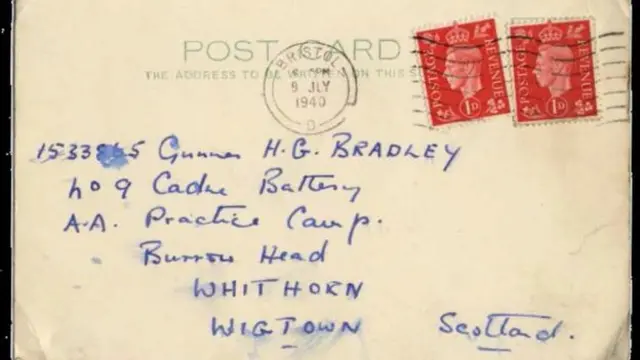 POST CARD
THE ADDRESS TO BE WRITTEN ON THIS
BRISTOL
PM
9 JLY
1940
POSTAGE REVENUE 1D
POSTAGE REVENUE 1D
Gunner H.G. BRADLEY
No 9 Cadre Battery
A.A. Practice Camp.
Burrow Head
WHITHORN
WIGTOWN Scotland.